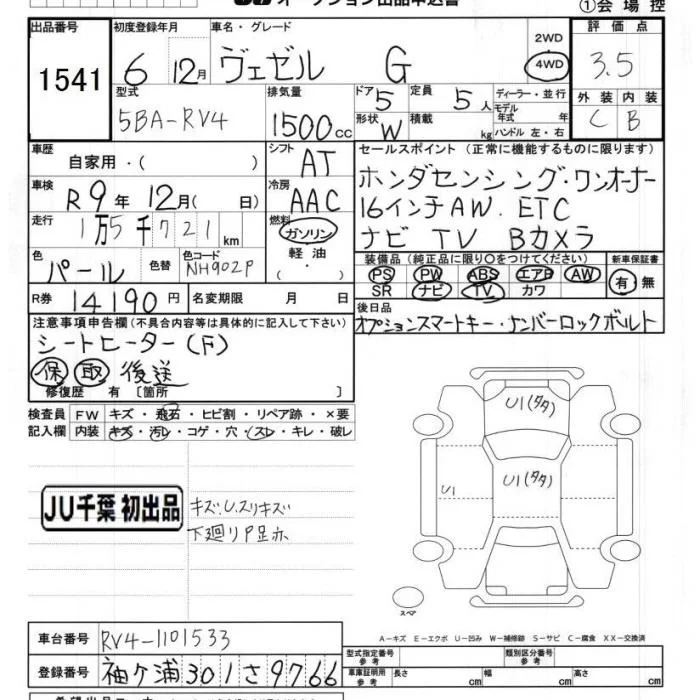 ①会場控
出品番号 初度登録年月 車名・グレード 評価点
1541 6 12月 ヴェゼル G 2WD 4WD 3.5
型式 排気量 ドア 5 定員 5人 ディーラー・並行 外装 内装
5BA-RV4 1500cc 形状 W 積載 kg モデル年式 年 ハンドル 左・右 C B
車歴 自家用・( ) シフト AT セールスポイント (正常に機能するものに限ります)
車検 R9年12月( 日) 冷房 AAC ホンダセンシング・ワンオーナー
走行 1万5千721km 燃料 ガソリン 軽油 16インチAW. ETC
ナビ TV Bカメラ
色 パール 色替 色コード NH902P 装備品 (純正品に限り○をつけてください) 新車保証書
PS PW ABS エアB AW 有・無
R券 14190円 名変期限 月 日 SR ナビ TV カワ
注意事項申告欄(不具合内容等は具体的に記入して下さい) 後日品
シートヒーター(F) オプションスマートキー・ナンバーロックボルト
保 取 後送
修復歴 有 〔箇所 〕
検査員 FW キズ・飛石・ヒビ割・リペア跡・×要
記入欄 内装 キズ・汚レ・コゲ・穴・スレ・キレ・破レ
U1(タタ)
U1(タタ)
U1
JU千葉 初出品 キズ.U.スリキズ
スペア
A-キズ E-エクボ U-凹み W-補修跡 S-サビ C-腐食 XX-交換済
車台番号 RV4-1101533 型式指定番号 参考 類別区分番号 参考
登録番号 袖ケ浦 301 さ 9766 車庫証明用 参考 長さ cm 幅 cm 高さ cm